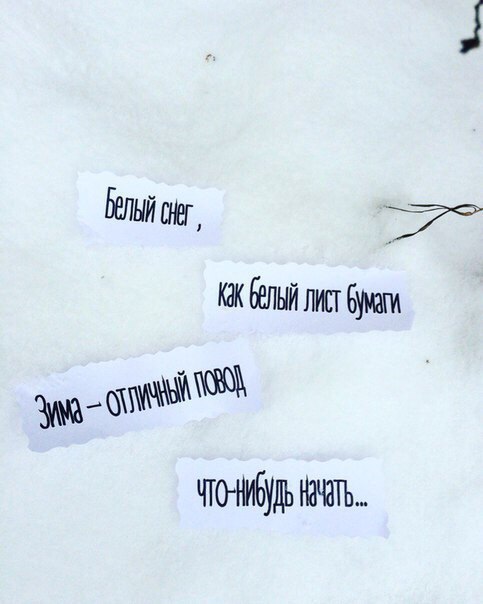 Белый снег,
как белый лист бумаги
Зима – отличный повод
что-нибудь начать...